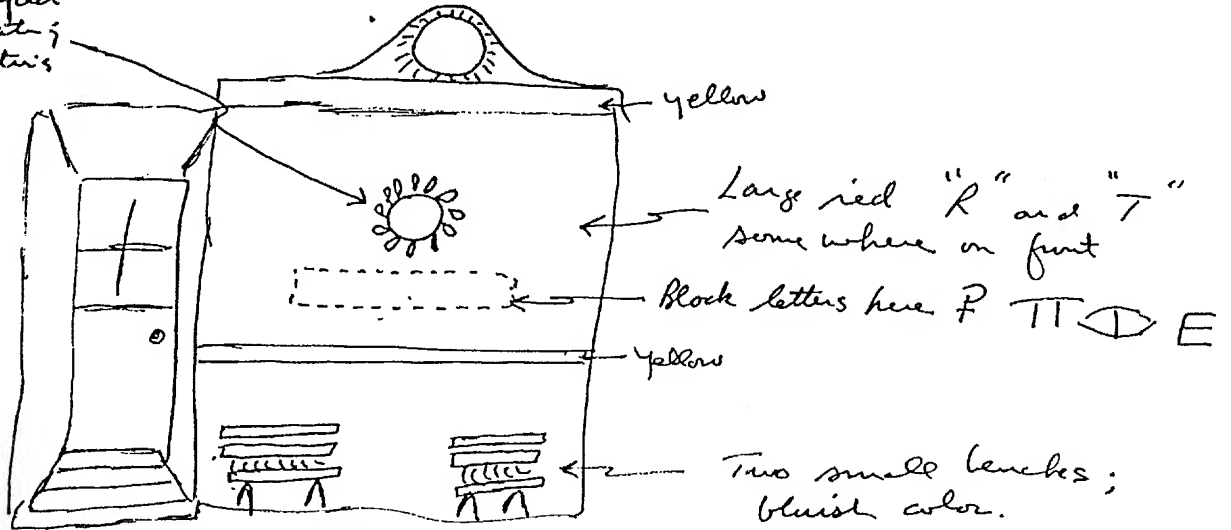 yellow
Large red "R" and "T"
some where on front
Block letters here P П Ф E
yellow
Two small benches;
bluish color.